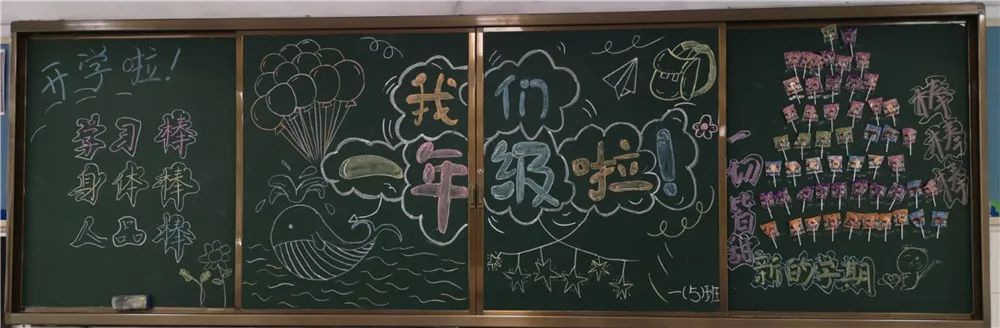 开学啦!
学习 棒
身体棒
人品棒
我们
一年级啦!
一(5)班
一切皆甜
棒棒棒
新的学期